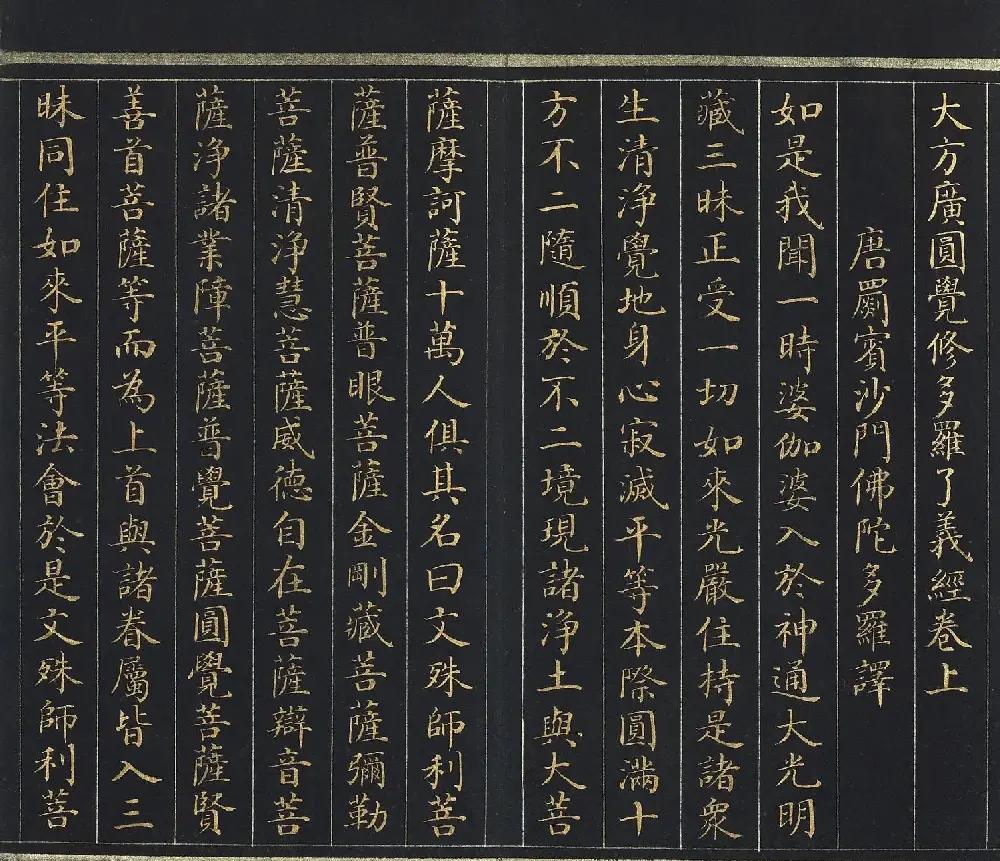 大方廣圓覺修多羅了義經卷上
唐罽賓沙門佛陀多羅譯
如是我聞一時婆伽婆入於神通大光明
藏三昧正受一切如來光嚴住持是諸衆
生清淨覺地身心寂滅平等本際圓滿十
方不二隨順於不二境現諸淨土與大菩
薩摩訶薩十萬人俱其名曰文殊師利菩
薩普賢菩薩普眼菩薩金剛藏菩薩彌勒
菩薩清淨慧菩薩威德自在菩薩辯音菩
薩淨諸業障菩薩普覺菩薩圓覺菩薩賢
善首菩薩等而為上首與諸眷屬皆入三
昧同住如來平等法會於是文殊師利菩